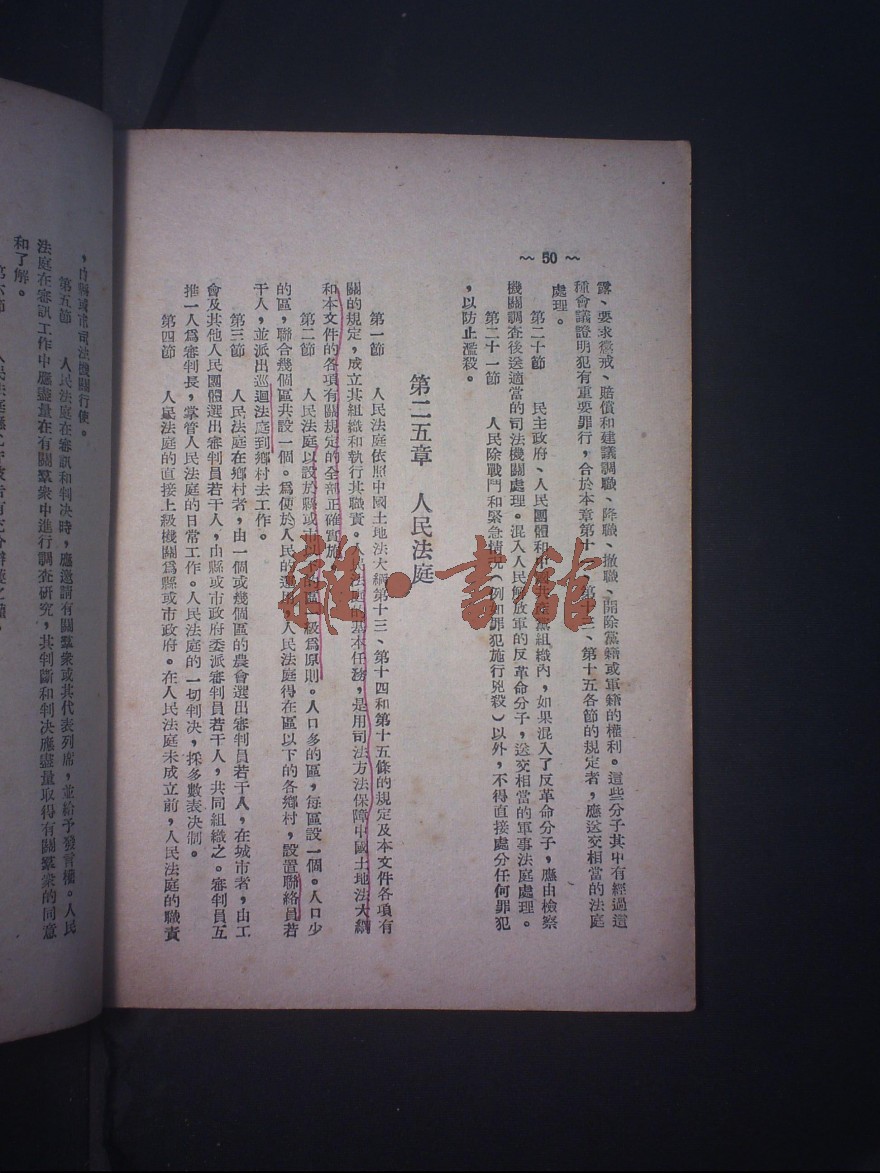 ~ 50 ~
露、要求懲戒、賠償和建議調職、降職、撤職、開除黨籍或軍籍的權利。這些分子其中有經過這
種會議證明犯有重要罪行，合於本章第十 、第十三、第十五各節的規定者，應送交相當的法庭
處理。
第二十節 民主政府、人民團體和中國共產黨組織內，如果混入了反革命分子，應由檢察
機關調查後送適當的司法機關處理。混入人民解放軍的反革命分子，送交相當的軍事法庭處理。
第二十一節 人民除戰鬥和緊急情況（例如罪犯施行兇殺）以外，不得直接處分任何罪犯
，以防止濫殺。
第二五章 人民法庭
第一節 人民法庭依照中國土地法大綱第十三、第十四和第十五條的規定及本文件各項有
關的規定，成立其組織和執行其職責。人民法庭的基本任務，是用司法方法保障中國土地法大綱
和本文件的各項有關規定的全部正確實施。
第二節 人民法庭以設於縣或市以下的區一級為原則。人口多的區，每區設一個。人口少
的區，聯合幾個區共設一個。為便於人民的運用，人民法庭得在區以下的各鄉村，設置聯絡員若
干人，並派出巡迴法庭到鄉村去工作。
第三節 人民法庭在鄉村者，由一個或幾個區的農會選出審判員若干人，在城市者，由工
會及其他人民團體選出審判員若干人，由縣或市政府委派審判員若干人，共同組織之。審判員互
推一人為審判長，掌管人民法庭的日常工作。人民法庭的一切判決，採多數表決制。
第四節 人民法庭的直接上級機關為縣或市政府。在人民法庭未成立前，人民法庭的職責
，由縣或市司法機關行使。
第五節 人民法庭在審訊和判決時，應邀請有關羣衆或其代表列席，並給予發言權。人民
法庭在審訊工作中應盡量在有關羣衆中進行調查研究，其判斷和判決應盡量取得有關羣衆的同意
和了解。
第六節 人民法庭
雜·書館